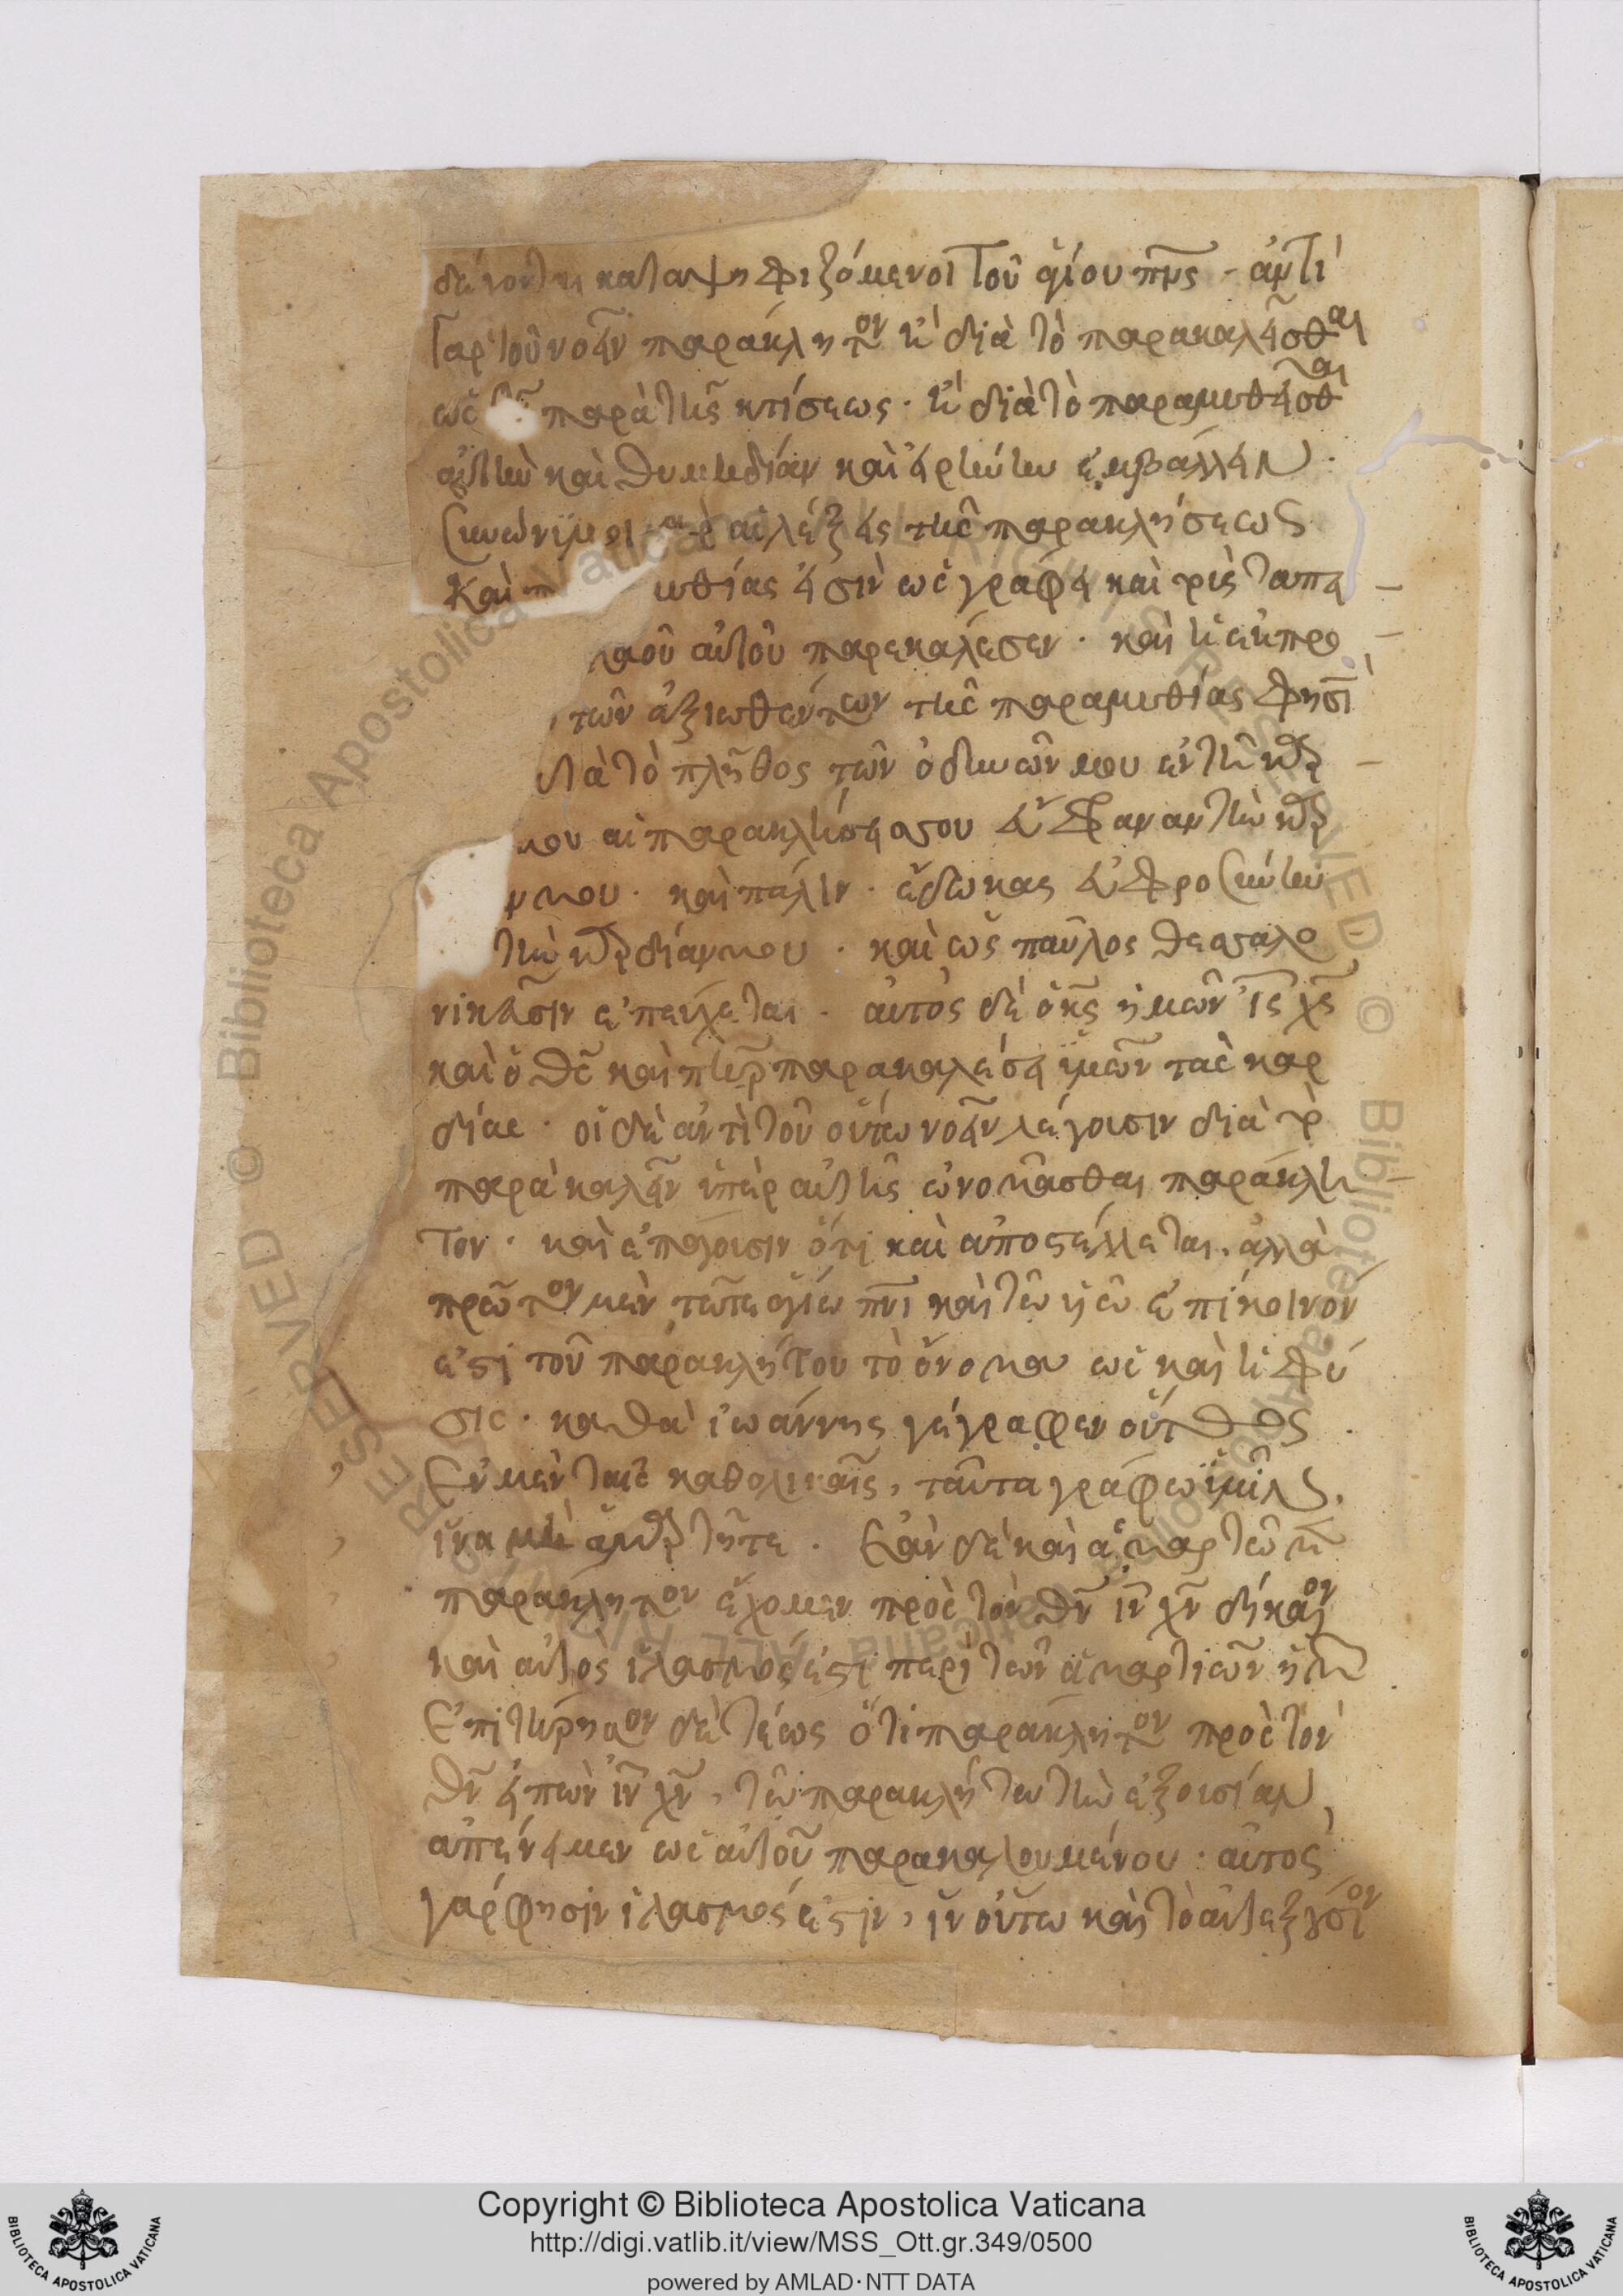 καταψηφιζόμενοι τοῦ ἁγίου πν̅ς · ἀντὶ
γὰρ τοῦ νοεῖν παράκλητον ἢ διὰ τὸ παρακαλεῖσθαι
ὡς παρὰ τῆς κτίσεως · ἢ διὰ τὸ παραμυθεῖσθαι
αὐτὴν καὶ θυμηδίαν καὶ εἰρήνην ἐμβάλλειν ·
αἱ λέξεις τῆς παρακλήσεως
καὶ υθίας εἰσὶν ὡς γράφει καὶ τρὶς
αὐτοῦ παρεκάλεσεν · καὶ
τῶν ἀξιωθέντων τῆς παραμυθίας φησὶ
τὰ τὸ πλῆθος τῶν ὀδυνῶν μου ἐν τῇ καρ
μου αἱ παρακλήσεις σου εὔφραναν τὴν
μου · καὶ πάλιν · ἔδωκας εὐφροσύνην
τὴν καρδίαν μου · καὶ ὡς παῦλος θεσσαλο
νικεῦσιν ἐπεύχεται · αὐτὸς δὲ ὁ κ̅ς ἡμῶν ι̅ς χ̅ς
καὶ ὁ θ̅ς καὶ π̅η̅ρ παρακαλέσει ὑμῶν τὰς καρ
δίας · οἱ δὲ ἀντὶ τοῦ οὕτω νοεῖν λέγουσιν διὰ τὸ
παρακαλεῖν ὑπὲρ αὐτῆς ὠνομᾶσθαι παράκλη
τον · καὶ ἐπάγουσιν ὅτι καὶ ἀποστέλλεται · ἀλλὰ
πρῶτον μὲν τῶτε ἁγίω πν̅ι καὶ τῶ υἱῶ ἐπίκοινόν
ἐστι τοῦ παρακλήτου τὸ ὄνομα ὡς καὶ ἡ φύ
σις · καθὰ ἰωάννης γέγραφεν
Ἐν μὲν ταῖς καθολικαῖς, ταῦτα γράφω ὑμῖν,
ἵνα μὴ ἁμάρτητε · Ἐὰν δὲ καὶ ἁμαρτῶμεν
παράκλητον ἔχομεν πρὸς τὸν θ̅ν ι̅ν χ̅ν δίκαιον
καὶ αὐτὸς ἱλασμός ἐστι περὶ τῶν ἁμαρτιῶν ἡμῶν
Ἐπιτήρησον δὲ τέως ὅτι παράκλητον πρὸς τὸν
θ̅ν εἰπὼν ι̅ν χ̅ν, τῶ παρακλήτω τὴν ἐξουσίαν
ἀπένειμεν ὡς αὐτοῦ παρακαλουμένου · αὐτὸς
γάρ φησιν ἱλασμός ἐστιν, ἵν' οὕτω καὶ τὸ αὐτεξούσιον
Copyright © Biblioteca Apostolica Vaticana
http://digi.vatlib.it/view/MSS_Ott.gr.349/0500
powered by AMLAD·NTT DATA
BIBLIOTECA APOSTOLICA VATICANA
BIBLIOTECA APOSTOLICA VATICANA